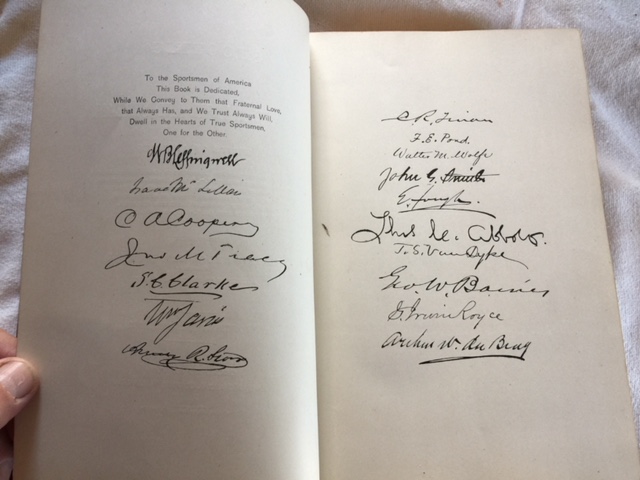 To the Sportsmen of America
This Book is Dedicated,
While We Convey to Them that Fraternal Love,
that Always Has, and We Trust Always Will,
Dwell in the Hearts of True Sportsmen,
One for the Other.
W B Leffingwell
Isaac McLellan
C A Cooper
Jno M Tracy
S. C. Clarke
Wm Jarvis
A.
C R.
F. E. Pond.
Walter M. Wolfe
John G. Smith
E. Hough.
Chas.
T. S. Van Dyke
Geo. W. Baines
G. Irwin Royce
Arthur W. du Bray